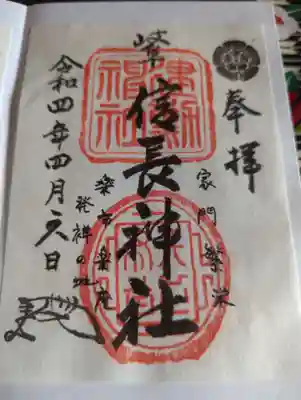 奉拝
家門繁栄
岐阜
信長神社
楽市楽座
発祥の地
令和四年四月六日